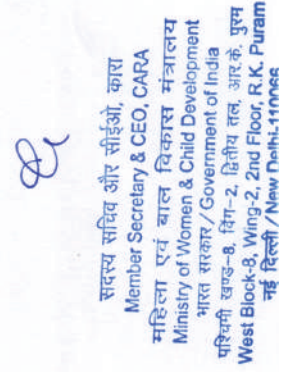 सदस्य सचिव और सीईओ, कारा
Member Secretary & CEO, CARA
महिला एवं बाल विकास मंत्रालय
Ministry of Women & Child Development
भारत सरकार / Government of India
पश्चिमी खण्ड–8, विंग–2, द्वितीय तल, आर.के. पुरम
West Block-8, Wing-2, 2nd Floor, R.K. Puram
नई दिल्ली / New Delhi-110066